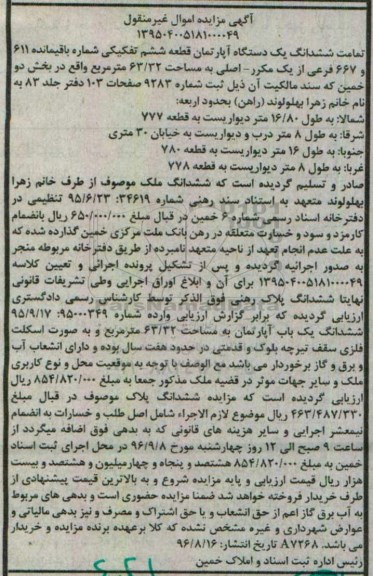 آگهی مزایده اموال غیرمنقول
۱۳۹۵۰۴۰۰۵۱۸۱۰۰۰۰۴۹
تمامت ششدانگ یک دستگاه آپارتمان قطعه ششم تفکیکی شماره باقیمانده ۶۱۱
و ۶۶۷ فرعی از یک مکرر- اصلی به مساحت ۶۳/۳۲ مترمربع واقع در بخش دو
خمین که سند مالکیت آن ذیل ثبت شماره ۹۲۸۳ صفحات ۱۰۳ دفتر جلد ۸۳ به
نام خانم زهرا بهلولوند (راهن) بحدود اربعه:
شمالا: به طول ۱۶/۸۰ متر دیواریست به قطعه ۷۷۷
شرقا: به طول ۸ متر درب و دیواریست به خیابان ۳۰ متری
جنوبا: به طول ۱۶ متر دیواریست به قطعه ۷۸۰
غربا: به طول ۸ متر دیواریست به قطعه ۷۷۸
صادر و تسلیم گردیده است که ششدانگ ملک موصوف از طرف خانم زهرا
بهلولوند متعهد به استناد سند رهنی شماره ۳۴۶۱۹: ۹۵/۶/۲۳ تنظیمی در
دفترخانه اسناد رسمی شماره ۶ خمین در قبال مبلغ ۶۵۰/۰۰۰/۰۰۰ ریال بانضمام
کارمزد و سود و خسارت متعلقه در رهن بانک ملت مرکزی خمین گذارده شده که
به علت عدم انجام تعهد از ناحیه متعهد نامبرده از طریق دفترخانه مربوطه منجر
به صدور اجرائیه گردیده و پس از تشکیل پرونده اجرائی و تعیین کلاسه
۱۳۹۵۰۴۰۰۵۱۸۱۰۰۰۰۴۹ برای آن و ابلاغ اوراق اجرایی وطی تشریفات قانونی
نهایتا ششدانگ پلاک رهنی فوق الذکر توسط کارشناس رسمی دادگستری
ارزیابی گردیده که برابر گزارش ارزیابی وارده شماره ۹۵۰۰۰۳۴۹: ۹۵/۹/۱۷
ششدانگ یک باب آپارتمان به مساحت ۶۳/۳۲ مترمربع و به صورت اسکلت
فلزی سقف تیرچه بلوک و قدمتی در حدود هفت سال بوده و دارای انشعاب آب
و برق و گاز برخوردار می باشد مع الوصف با توجه به موقعیت محل و نوع کاربری
ملک و سایر جهات موثر در قضیه ملک مذکور جمعا به مبلغ ۸۵۴/۸۲۰/۰۰۰ ریال
ارزیابی گردیده است که مزایده ششدانگ پلاک موصوف در قبال مبلغ
۴۶۳/۴۸۷/۳۳۰ ریال موضوع لازم الاجراء شامل اصل طلب و خسارات به انضمام
نیمعشر اجرایی و سایر هزینه های قانونی که به بدهی فوق اضافه میگردد از
ساعت ۹ صبح الی ۱۲ روز چهارشنبه مورخ ۹۶/۹/۸ در محل اجرای ثبت اسناد
خمین به مبلغ ۸۵۴/۸۲۰/۰۰۰ هشتصد و پنجاه و چهارمیلیون و هشتصد و بیست
هزار ریال قیمت ارزیابی و پایه مزایده شروع و به بالاترین قیمت پیشنهادی از
طرف خریدار فروخته خواهد شد ضمنا مزایده حضوری است و بدهی های مربوط
به آب برق گاز اعم از حق انشعاب و یا حق اشتراک و مصرف و نیز بدهی مالیاتی و
عوارض شهرداری و غیره مشخص نشده که کلا برعهده برنده مزایده و خریدار
می باشد. A۷۲۶۸ تاریخ انتشار: ۹۶/۸/۱۶
رئیس اداره ثبت اسناد و املاک خمین